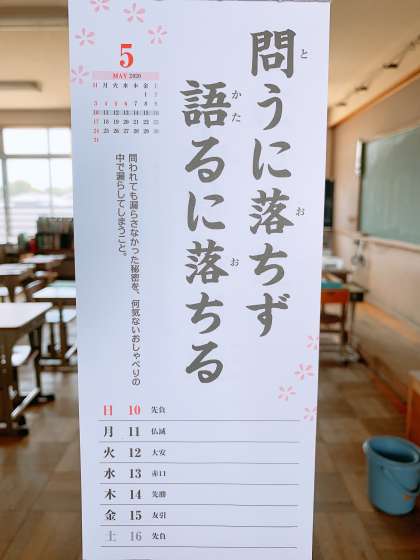 問うに落ちず
語るに落ちる
問われても漏らさなかった秘密を、何気ないおしゃべりの
中で漏らしてしまうこと。
5
MAY 2020
日 月 火 水 木 金 土
1 2
3 4 5 6 7 8 9
10 11 12 13 14 15 16
17 18 19 20 21 22 23
24 25 26 27 28 29 30
31
日 10 先負
月 11 仏滅
火 12 大安
水 13 赤口
木 14 先勝
金 15 友引
土 16 先負